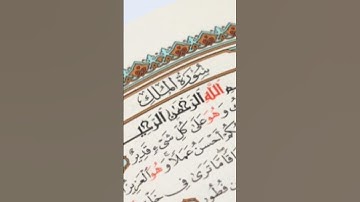 سُورَةُ المُلْكِ
اللهِ الرَّحْمٰنِ الرَّحِيـ
وَهُوَ عَلَى كُلِّ شَيْءٍ قَدِيرٌ
أَحْسَنُ عَمَلًا وَهُوَ الْعَزِيزُ
مَا تَرَى فِي خَلْـ
فُطُورٍ